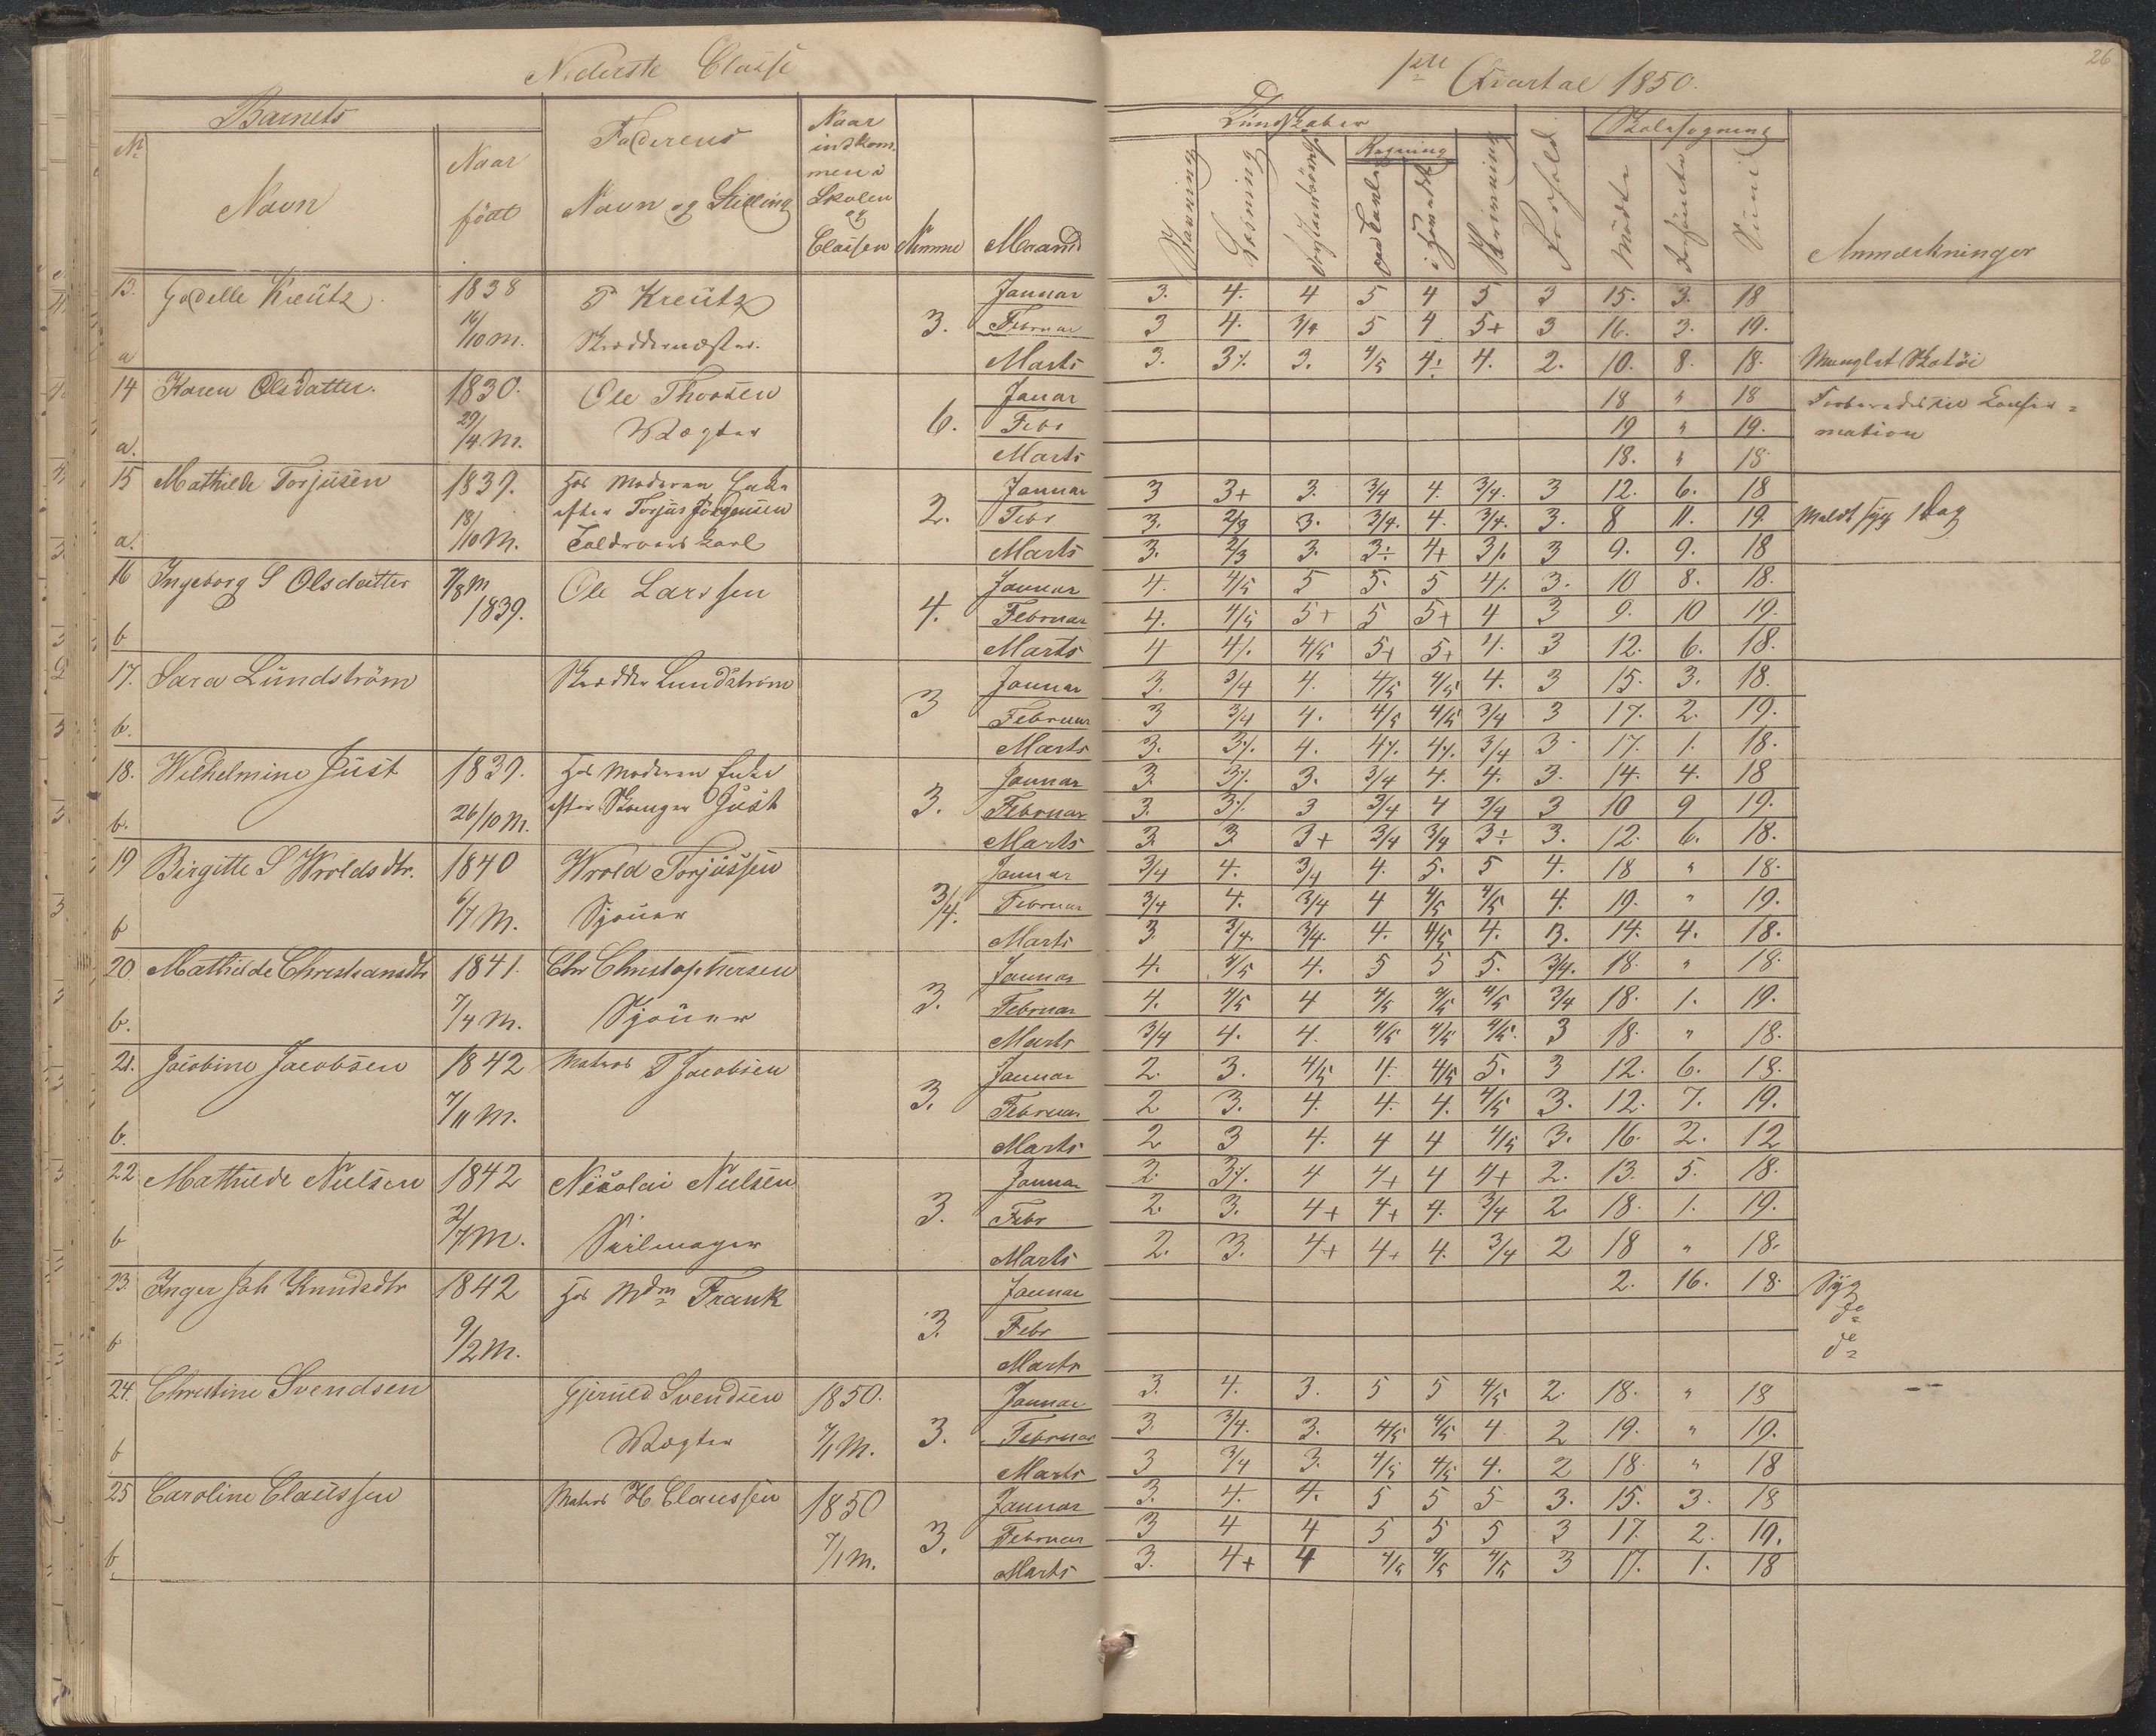 Nederste Classe
1ste Qvartal 1850.
26
Barnets
Nr
Navn
Naar
födt
Faderens
Navn og Stilling
Naar
indkom-
men i
Skolen
og
Classen
Nemme
Maaned
Kundskaber
Læsning
Regning
Skrivning
Forhold
Skolesøgning
Mødte
Forsömte
Sum
Anmærkninger
13. Godelle Kreutz. 1838 P Kreutz Januar 3. 4. 4 5 4 5 3 15. 3. 18
16/10 M. Skreddermester. 3. Februar 3 4. 3/4 5 4 5+ 3 16. 3. 19.
a Marts 3. 3% 3. 4/5 4÷ 4. 2. 10. 8. 18. Manglet Skotöi
14 Karen Olsdatter. 1830. Ole Thorsen Januar 18 " 18 Forberedes til Confir=
29/4 M. Vægter 6. Febr 19 " 19. mation
a. Marts 18. " 18
15 Mathilde Torjusen 1839. Hos Moderen Enke Januar 3 3+ 3. 3/4 4. 3/4. 3 12. 6. 18
18/10 M. efter Torjus Jörgensen 2. Febr 3. 2/3 3. 3/4. 4. 3/4. 3. 8 11. 19. Meldt syg 1 Dag
a. Toldroerskarl Marts 3. 2/3 3. 3÷ 4+ 3% 3 9. 9. 18
16 Ingeborg S Olsdatter 7/8 M Ole Larssen Januar 4. 4/5 5 5. 5 4% 3. 10 8. 18.
1839. 4. Februar 4. 4/5 5+ 5 5+ 4 3 9. 10 19.
b Marts 4 4% 4/5 5+ 5+ 4. 3 12. 6. 18.
17. Sara Lundström Skredder Lundström Januar 3. 3/4 4. 4/5 4/5 4. 3 15. 3. 18.
3 Februar 3 3/4 4. 4/5 4/5 3/4 3 17. 2. 19.
b. Marts 3. 3% 4. 4% 4% 3/4 3 17. 1. 18.
18. Wilhelmine Just 1839. Hos Moderen Enke Januar 3. 3% 3. 3/4 4. 4. 3. 14. 4. 18
26/10 M. efter Just 3. Februar 3. 3% 3 3/4 4 3/4 3 10 9 19.
b. Marts 3. 3 3+ 3/4 3/4 3÷ 3. 12. 6. 18.
19 Birgitte S Wroldsdtr. 1840 Wrold Torjussen Januar 3/4 4. 3/4 4. 5. 5 4. 18 " 18.
6/7 M. Sjouer 3/4. Februar 3/4 4. 3/4 4 4/5 4/5 4. 19. " 19.
b Marts 3 3/4. 3/4. 4. 4/5 4. 3. 14. 4. 18.
20. Mathilde Christiansdtr 1841. Chr Christophersen Januar 4. 4/5 4. 5 5 5. 3/4. 18. " 18.
7/4 M. Sjouer 3. Februar 4. 4/5 4 4/5 4/5 4/5 3/4 18. 1. 19.
b. Marts 3/4 4. 4. 4/5 4/5 4/5. 3 18. " 18.
21. Jacobine Jacobsen 1842 Matros T Jacobsen Januar 2. 3. 4/5 4. 4/5 5. 3 12. 6. 18.
7/11 M. 3. Februar 2 3. 4. 4. 4. 4/5 3. 12. 7. 19.
b. Marts 2 3 4. 4 4 4/5 3. 16. 2. 12
22 Mathilde Nielsen 1842 Nikolai Nielsen Januar 2. 3% 4 4+ 4 4+ 2. 13. 5. 18.
2/7 M. Seilmager 3. Febr 2. 3. 4+ 4+ 4. 3/4 2 18. 1. 19.
b Marts 2. 3. 4+ 4+ 4. 3/4 2 18 " 18.
23. Inger Joh Knudsdtr 1842 Hos Mdm Frank Januar 2. 16. 18. Syg
9/2 M. 3. Febr do
b Marts do
24. Christine Svendsen Gjeruld Svendsen 1850. Januar 3. 4. 3. 5 5 4/5 2. 18. " 18
Vægter 7/1 M. 3. Februar 3. 3/4. 3. 4/5 4/5 4 2 19. " 19.
b Marts 3 3/4 3. 4/5 4/5 4. 2 18. " 18
25 Caroline Claussen Matros H Claussen 1850 Januar 3. 4. 4. 5 5 5 3. 15. 3. 18
7/1 M. 3. Februar 3 4 4 5 5 5 3 17. 2. 19.
b. Marts 3. 4+ 4 4/5 4/5 4/5 3 17. 1. 18